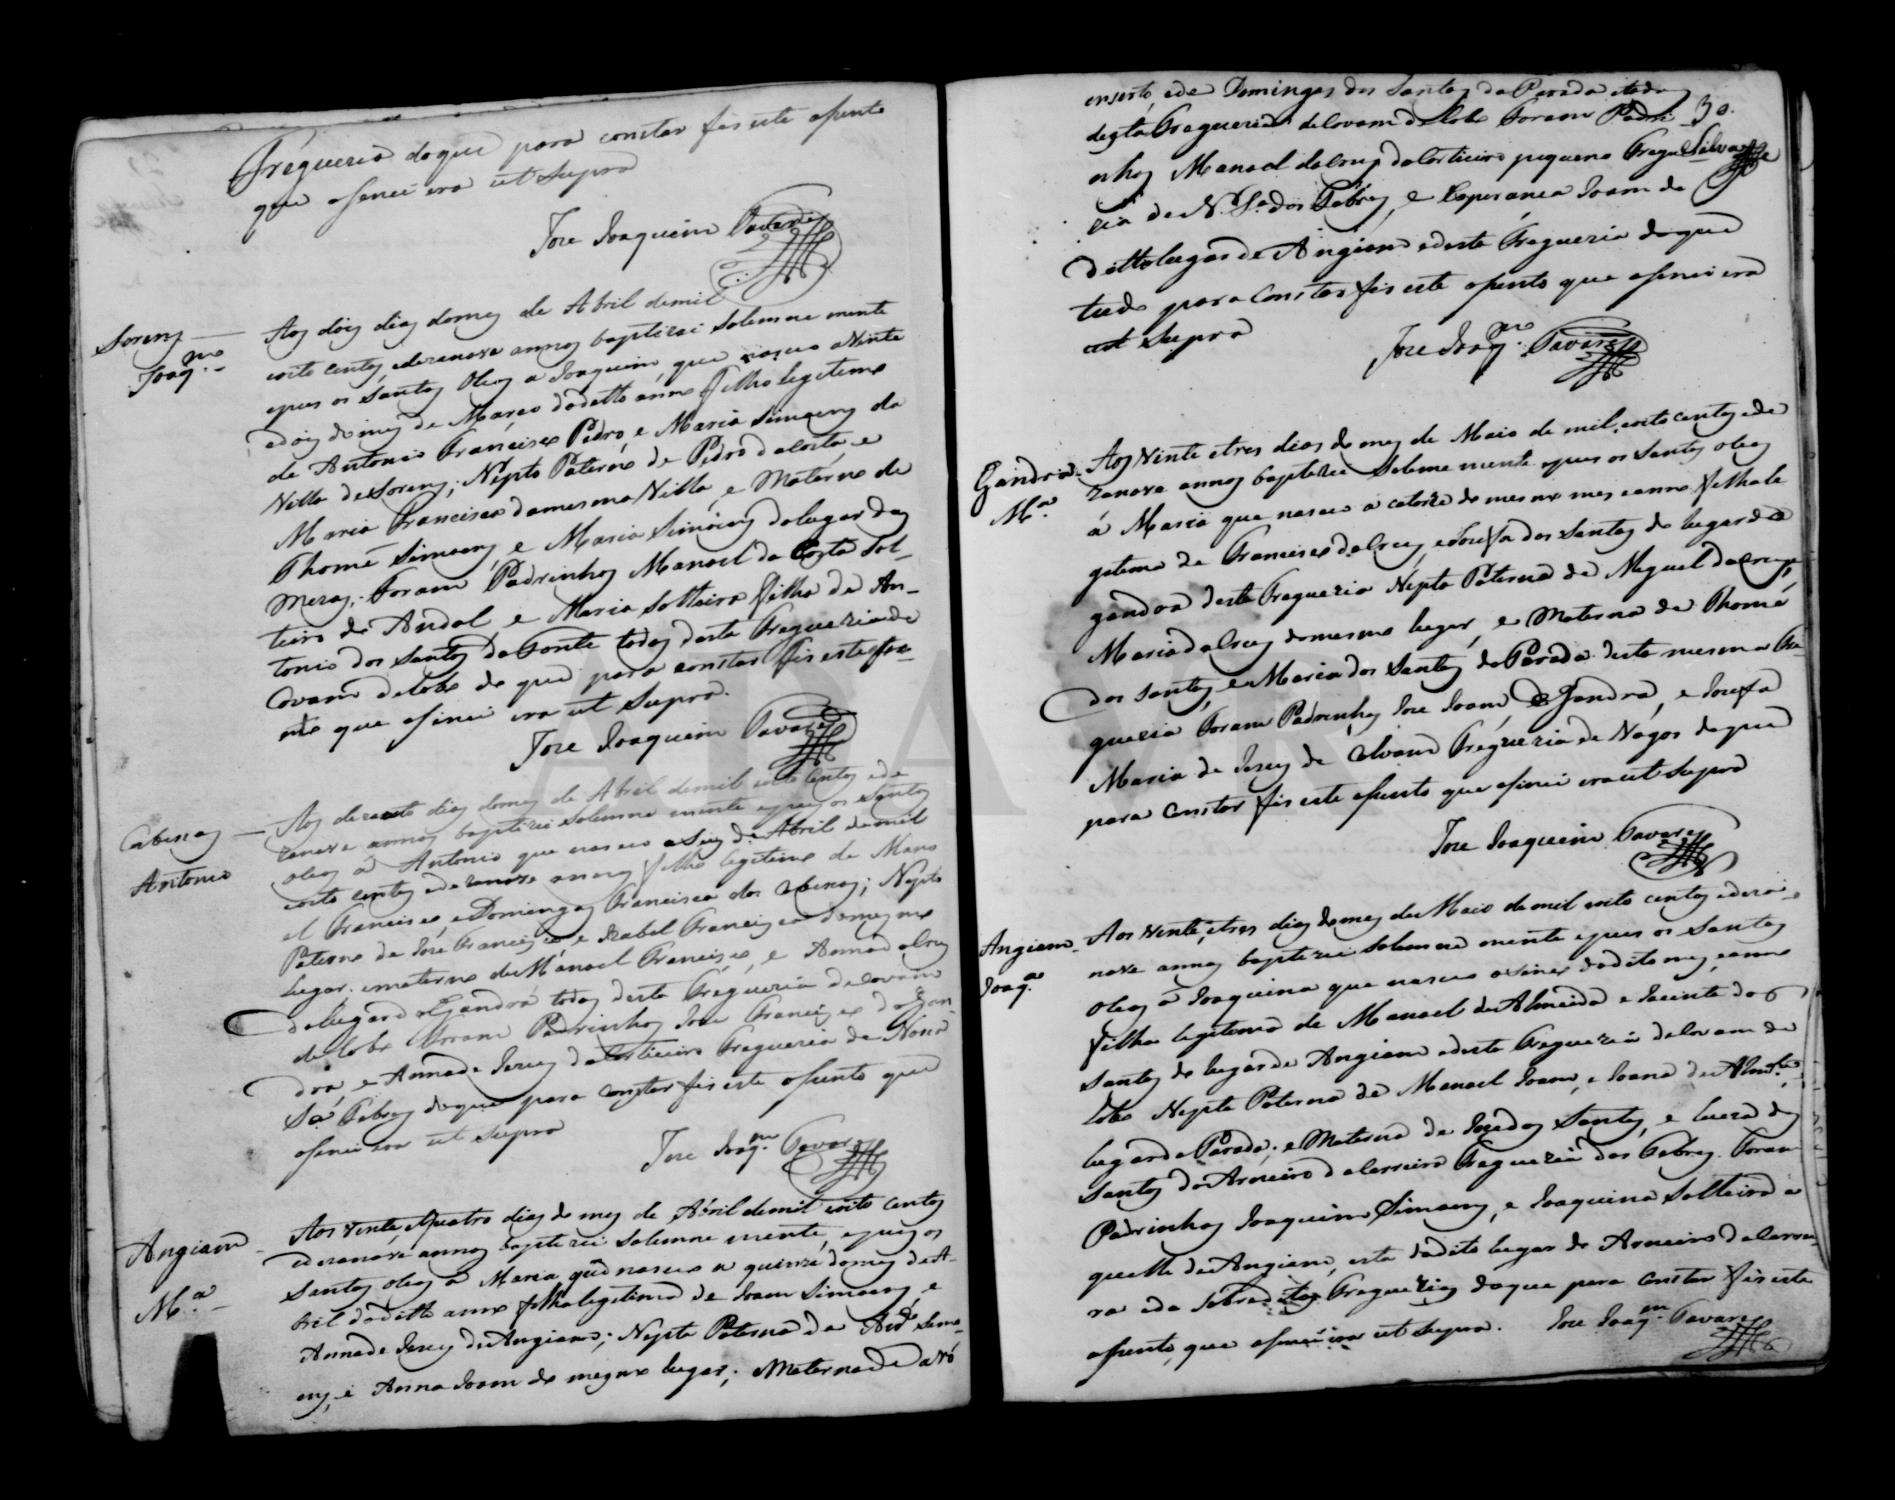 Fregueria doque para constar fis este asento
que asinei era ut Supra
Joze Joaquim Tavares
Sorens
Joaq.m
Aos dois dias domes de Abril demil
oito centos edezanove annos baptizei Solemne mente
epus os Santos Oleos a Joaquim, que nasceo avinte
edois do mes de Março dodetto anno filho legetimo
de Antonio Francisco Pedro, e Maria Simoens da
Villa de Sorens; Nepto Paterno de Pedro da Costa, e
Maria Francisca damesma Villa, e Materno de
Thomé Simoens, e Maria Simoens dolugar das
Meras; Foram Padrinhos Manoel da Costa Sol-
teiro de Andal e Maria Solteira filha de An-
tonio dos Santos da Fonte todos desta Fregueria de
Covam delobo do que para constar fis este
que asinei era ut Supra.
Joze Joaquim Tavares
Cabesas
Antonio
Aos dezaoito dias domes de Abril demil oito Centos ede
zanove annos baptizei Solemne mente epus os Santos
oleos a Antonio que nasceo a Seis de Abril demil
oito centos edezanove annos filho legetimo de Mano
el Francisco, e Domingas Francisca das Cabesas; Nepto
Paterno de José Francisco, e Izabel Francisca domesmo
lugar. ematerno de Manoel Francisco, e Anna da Crus
dolugar da Gandra todos desta Fregueria de Covam
de lobo Foram Padrinhos Joze Francisco da Gan-
dra, e Anna de Jesus da Corticeiro Fregueria de Nosa
Sr.a Febres doque para constar fis este asento que
asinei era ut Supra
Joze Joaq.m Tavares
Angiam
M.a
Aos vinte, equatro dias do mes de Abril demil oito centos
edezanove annos baptizei Solemne mente, epus os
Santos oleos a Maria que nasceo a quinze domes de A-
bril doditto anno filha legetima de Joam Simoens, e
Annade Jesus de Angiam; Nepta Paterna de Simo-
ens, e Anna Joam do mesmo lugar; Materna de
30.
Silva
enserto, ede Domingas dos Santos da Parada todos
desta Fregueria de Covam de lobo Foram Padri
nhos Manoel da Crus da Corticeiro pequeno Fregue
ria de N. Sr.a dos Febres, e Esperanca Joam do
ditto lugar de Angiam edesta Fregueria do que
tudo para Constar fis este asento que asinei era
ut Supra
Joze Joaq.m Tavares
Gandra
M.a
Aos vinte, etres dias do mes de Maio de mil, oito centos ede
zanove annos baptizei Soleme mente epus os Santos oleos
á Maria que nasceo a catorze do mesmo mes eanno filha le
getima de Francisco da Crus, e Josefa dos Santos do lugar da
gandra desta Fregueria Nepta Paterna de Miguel da Crus,
Maria da Crus domesmo lugar, e Materna de Thomé
dos Santos, e Maria dos Santos da Parada desta mesma Fre-
gueria Foram Padrinhos Joze Joam da Gandra, e Josefa
Maria de Jesus de Covam Fregueria de Vagos do que
para Constar fis este asento que asinei era ut Supra
Joze Joaquim Tavares
Angiam
Joaq.a
Aos vinte, etres dias domes de Maio demil oito centos edeza
nove annos baptizei Solemne mente epus os Santos
Oleos a Joaquina que nasceo a sinco dodito mes, eanno
filha legitima de Manoel de Almeida e Jacinta dos
Santos do lugar de Angiam edesta Fregueria de Covam de
lobo Nepta Paterna de Manoel Joam, e Joana de Almda
lugar da Parada; e Materna de Joze dos Santos, e Luiza dos
Santos do Arneiro da Carreira Fregueria das Febres. Foram
Padrinhos Joaquim Simoens, e Joaquina Solteira a
quelle de Angiam, esta dodito lugar do Arneiro da Carrei
ra eda Sobredittas Freguerias doque para Constar fis este
asento, que asinei era ut Supra. Joze Joaq.m Tavares